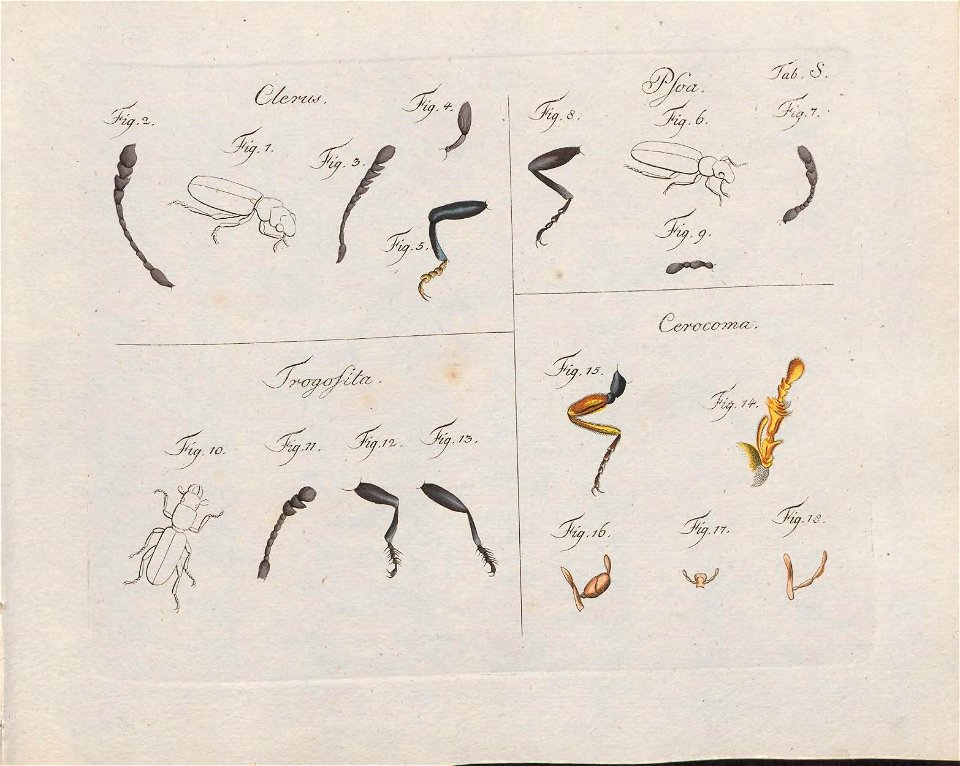 Tab. S.
Clerus.
Fig. 2.
Fig. 1.
Fig. 3.
Fig. 4.
Fig. 5.
Pſoa.
Fig. 8.
Fig. 6.
Fig. 7.
Fig. 9.
Trogoſita.
Fig. 10.
Fig. 11.
Fig. 12.
Fig. 13.
Cerocoma.
Fig. 15.
Fig. 14.
Fig. 16.
Fig. 17.
Fig. 18.